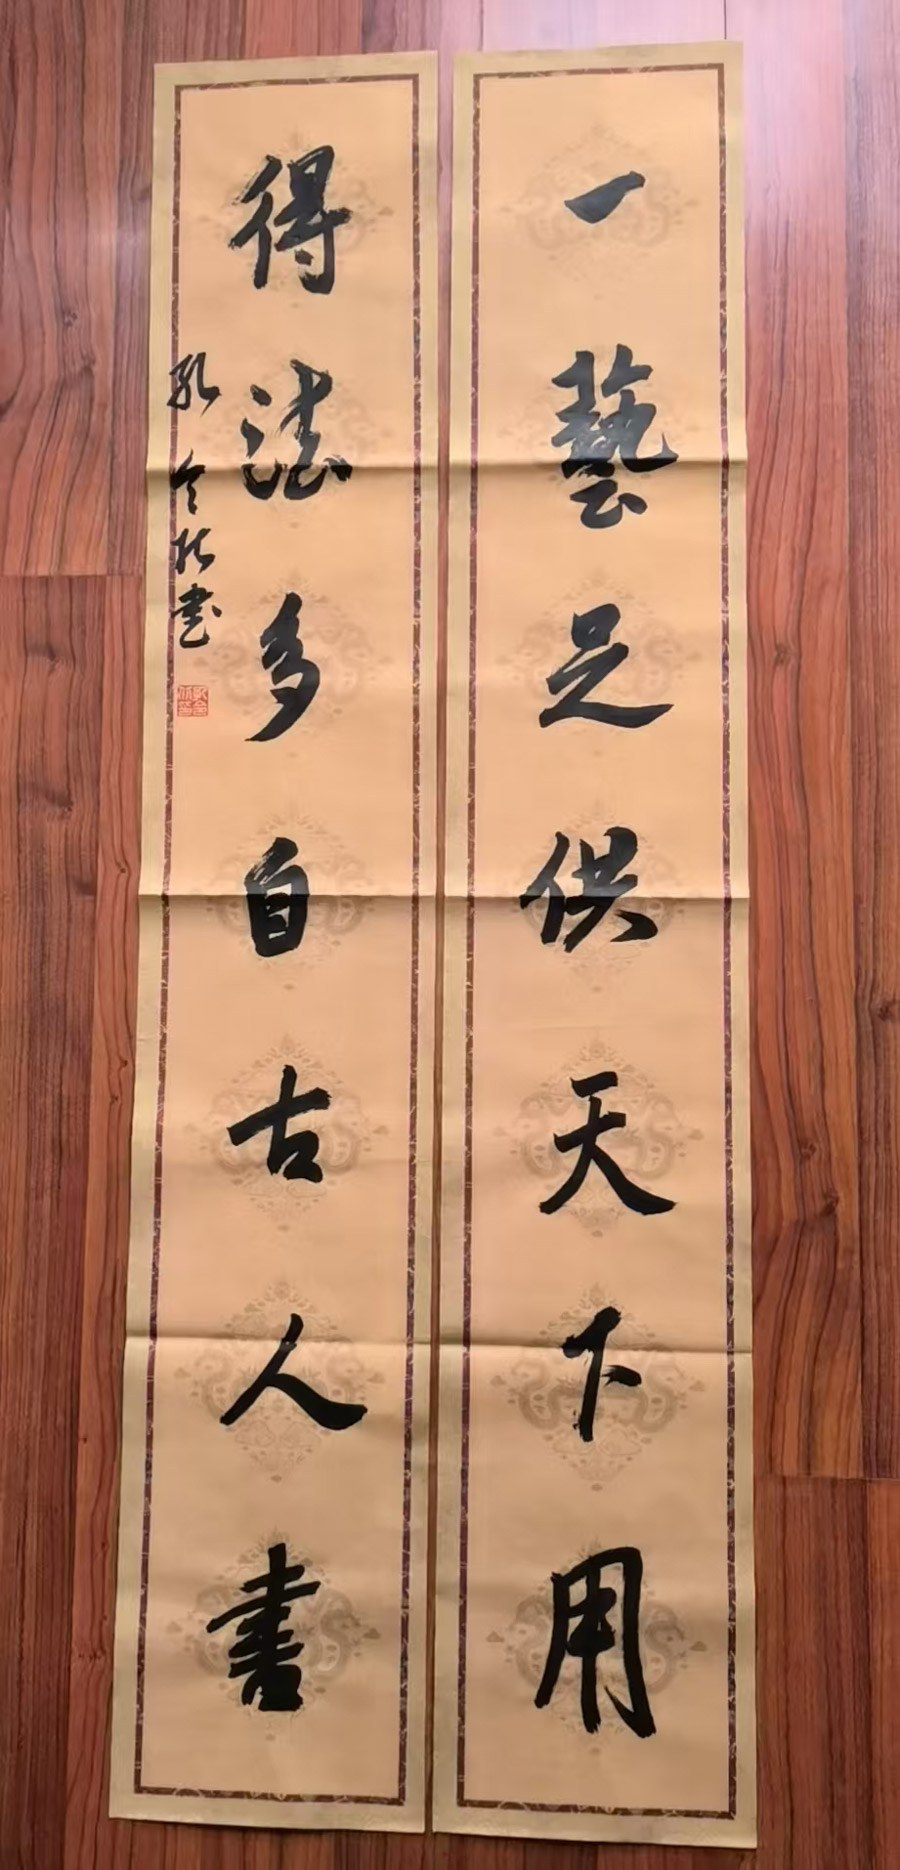 一藝足供天下用
得法多自古人書
孔令
書